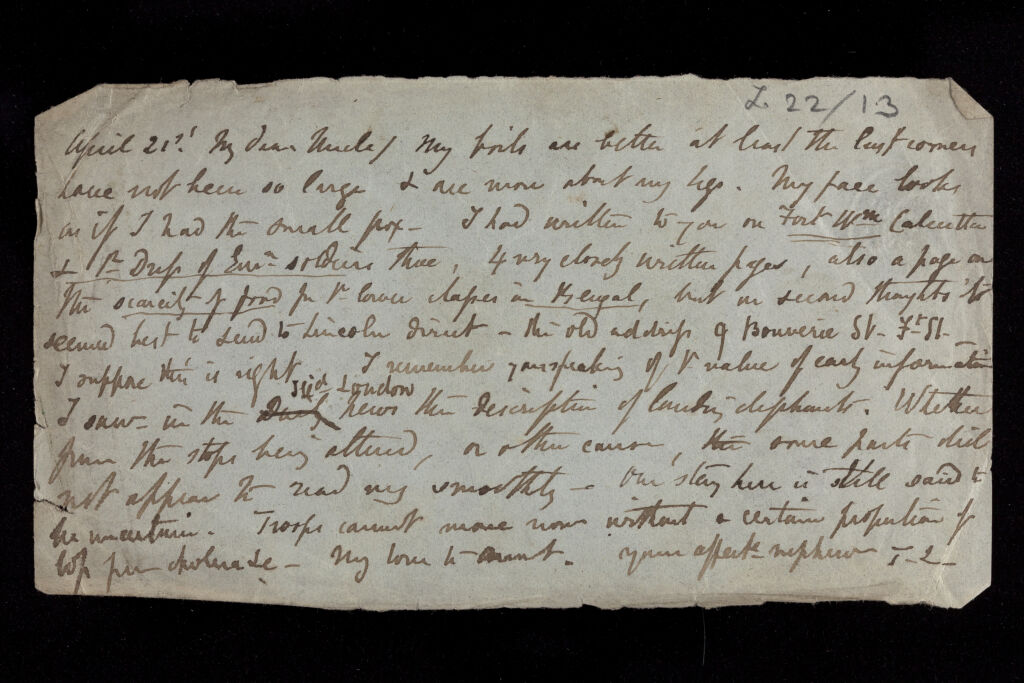 L. 22/13
April 21st. My dear Uncle, My boils are better at least the last comers
have not been so large & are more about my legs. My face looks
as if I had the small pox - I had written to you on Fort Wm Calcutta
& Dress of soldiers there, 4 very closely written pages, also a page on
the scarcity of food for lower classes in Bengal, but on second thoughts it
seemed best to send to Lincoln direct - the old address 9 Bouverie St - Ft St -
I suppose this is right I remember your speaking of value of early information
I saw in the Illd London news the description of landing elephants. Whether
from the stops being altered, or other cause, the some parts did
not appear to read very smoothly - Our stay here is still said to
be uncertain. Troops cannot move now without a certain proportion of
loss from cholera &c - My love to aunt. your affecte nephew